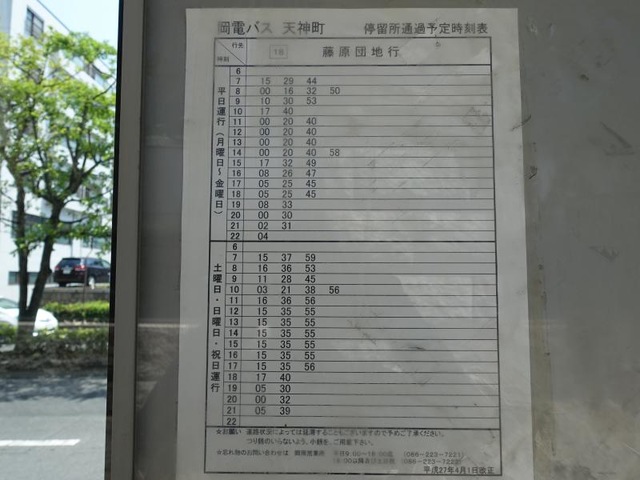 岡電バス 天神町 停留所通過予定時刻表
時刻 行先 18 藤原団地行
平日運行（月曜日～金曜日）
6
7 15 29 44
8 00 16 32 50
9 10 30 53
10 17 40
11 00 20 40
12 00 20 40
13 00 20 40
14 00 20 40 58
15 17 32 49
16 08 26 47
17 05 25 45
18 05 25 45
19 08 33
20 00 30
21 02 31
22 04
土曜日・日曜日・祝日運行
6
7 15 37 59
8 16 36 53
9 11 28 45
10 03 21 38 56
11 16 36 56
12 15 35 55
13 15 35 55
14 15 35 55
15 15 35 55
16 15 35 55
17 15 35 56
18 17 40
19 05 30
20 00 32
21 05 39
22
☆お願い 道路状況によっては延滞することもございますので予めご了承ください。
つり銭のいらないよう、小銭を、ご用意下さい。
☆忘れ物のお問い合わせは 岡原営業所 (086-223-7221)
平成27年4月1日改正